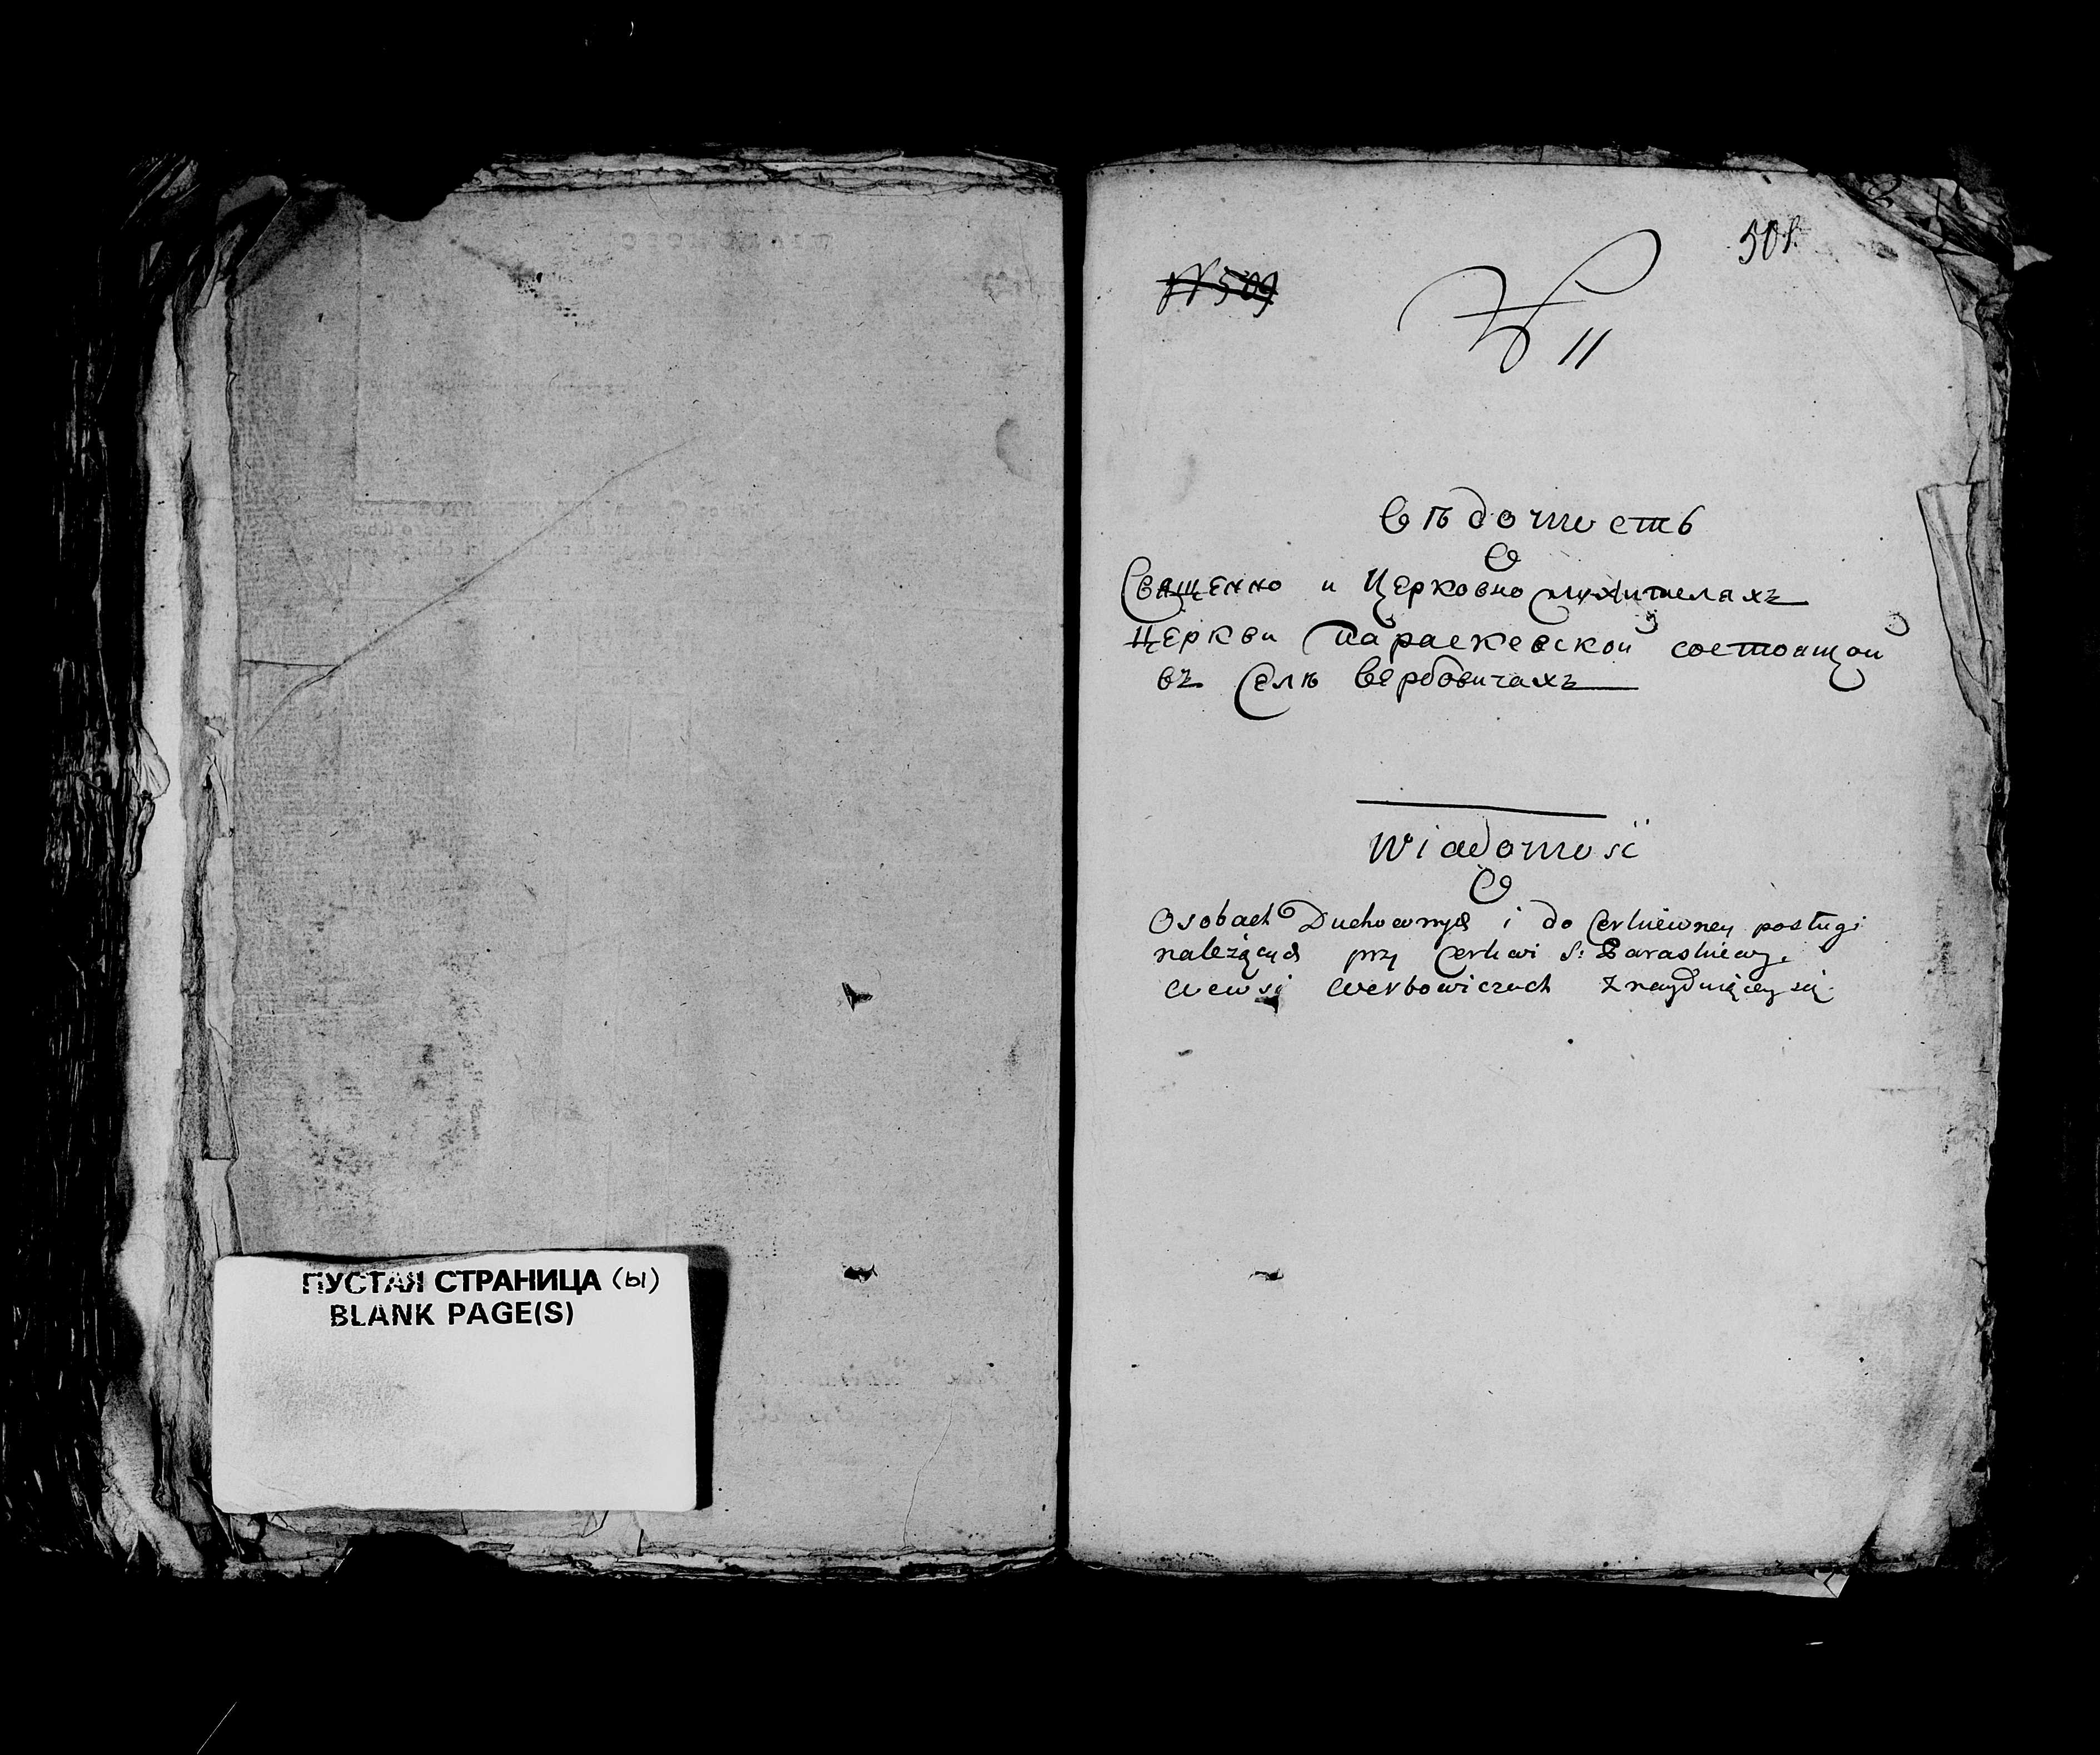 ПУСТАЯ СТРАНИЦА (ы)
BLANK PAGE(S)
501.
№ 509
№ 11
Вѣдомость
О
Священно и Церковно служителахъ
Церкви Параскевской состоящой
въ Селѣ Вербовичахъ
Wiadomość
O
Osobach Duchownych i do Cerkiewney posługi
należących przy Cerkwi S: Paraskiewy.
we wsi Werbowiczach znayduiącey się.